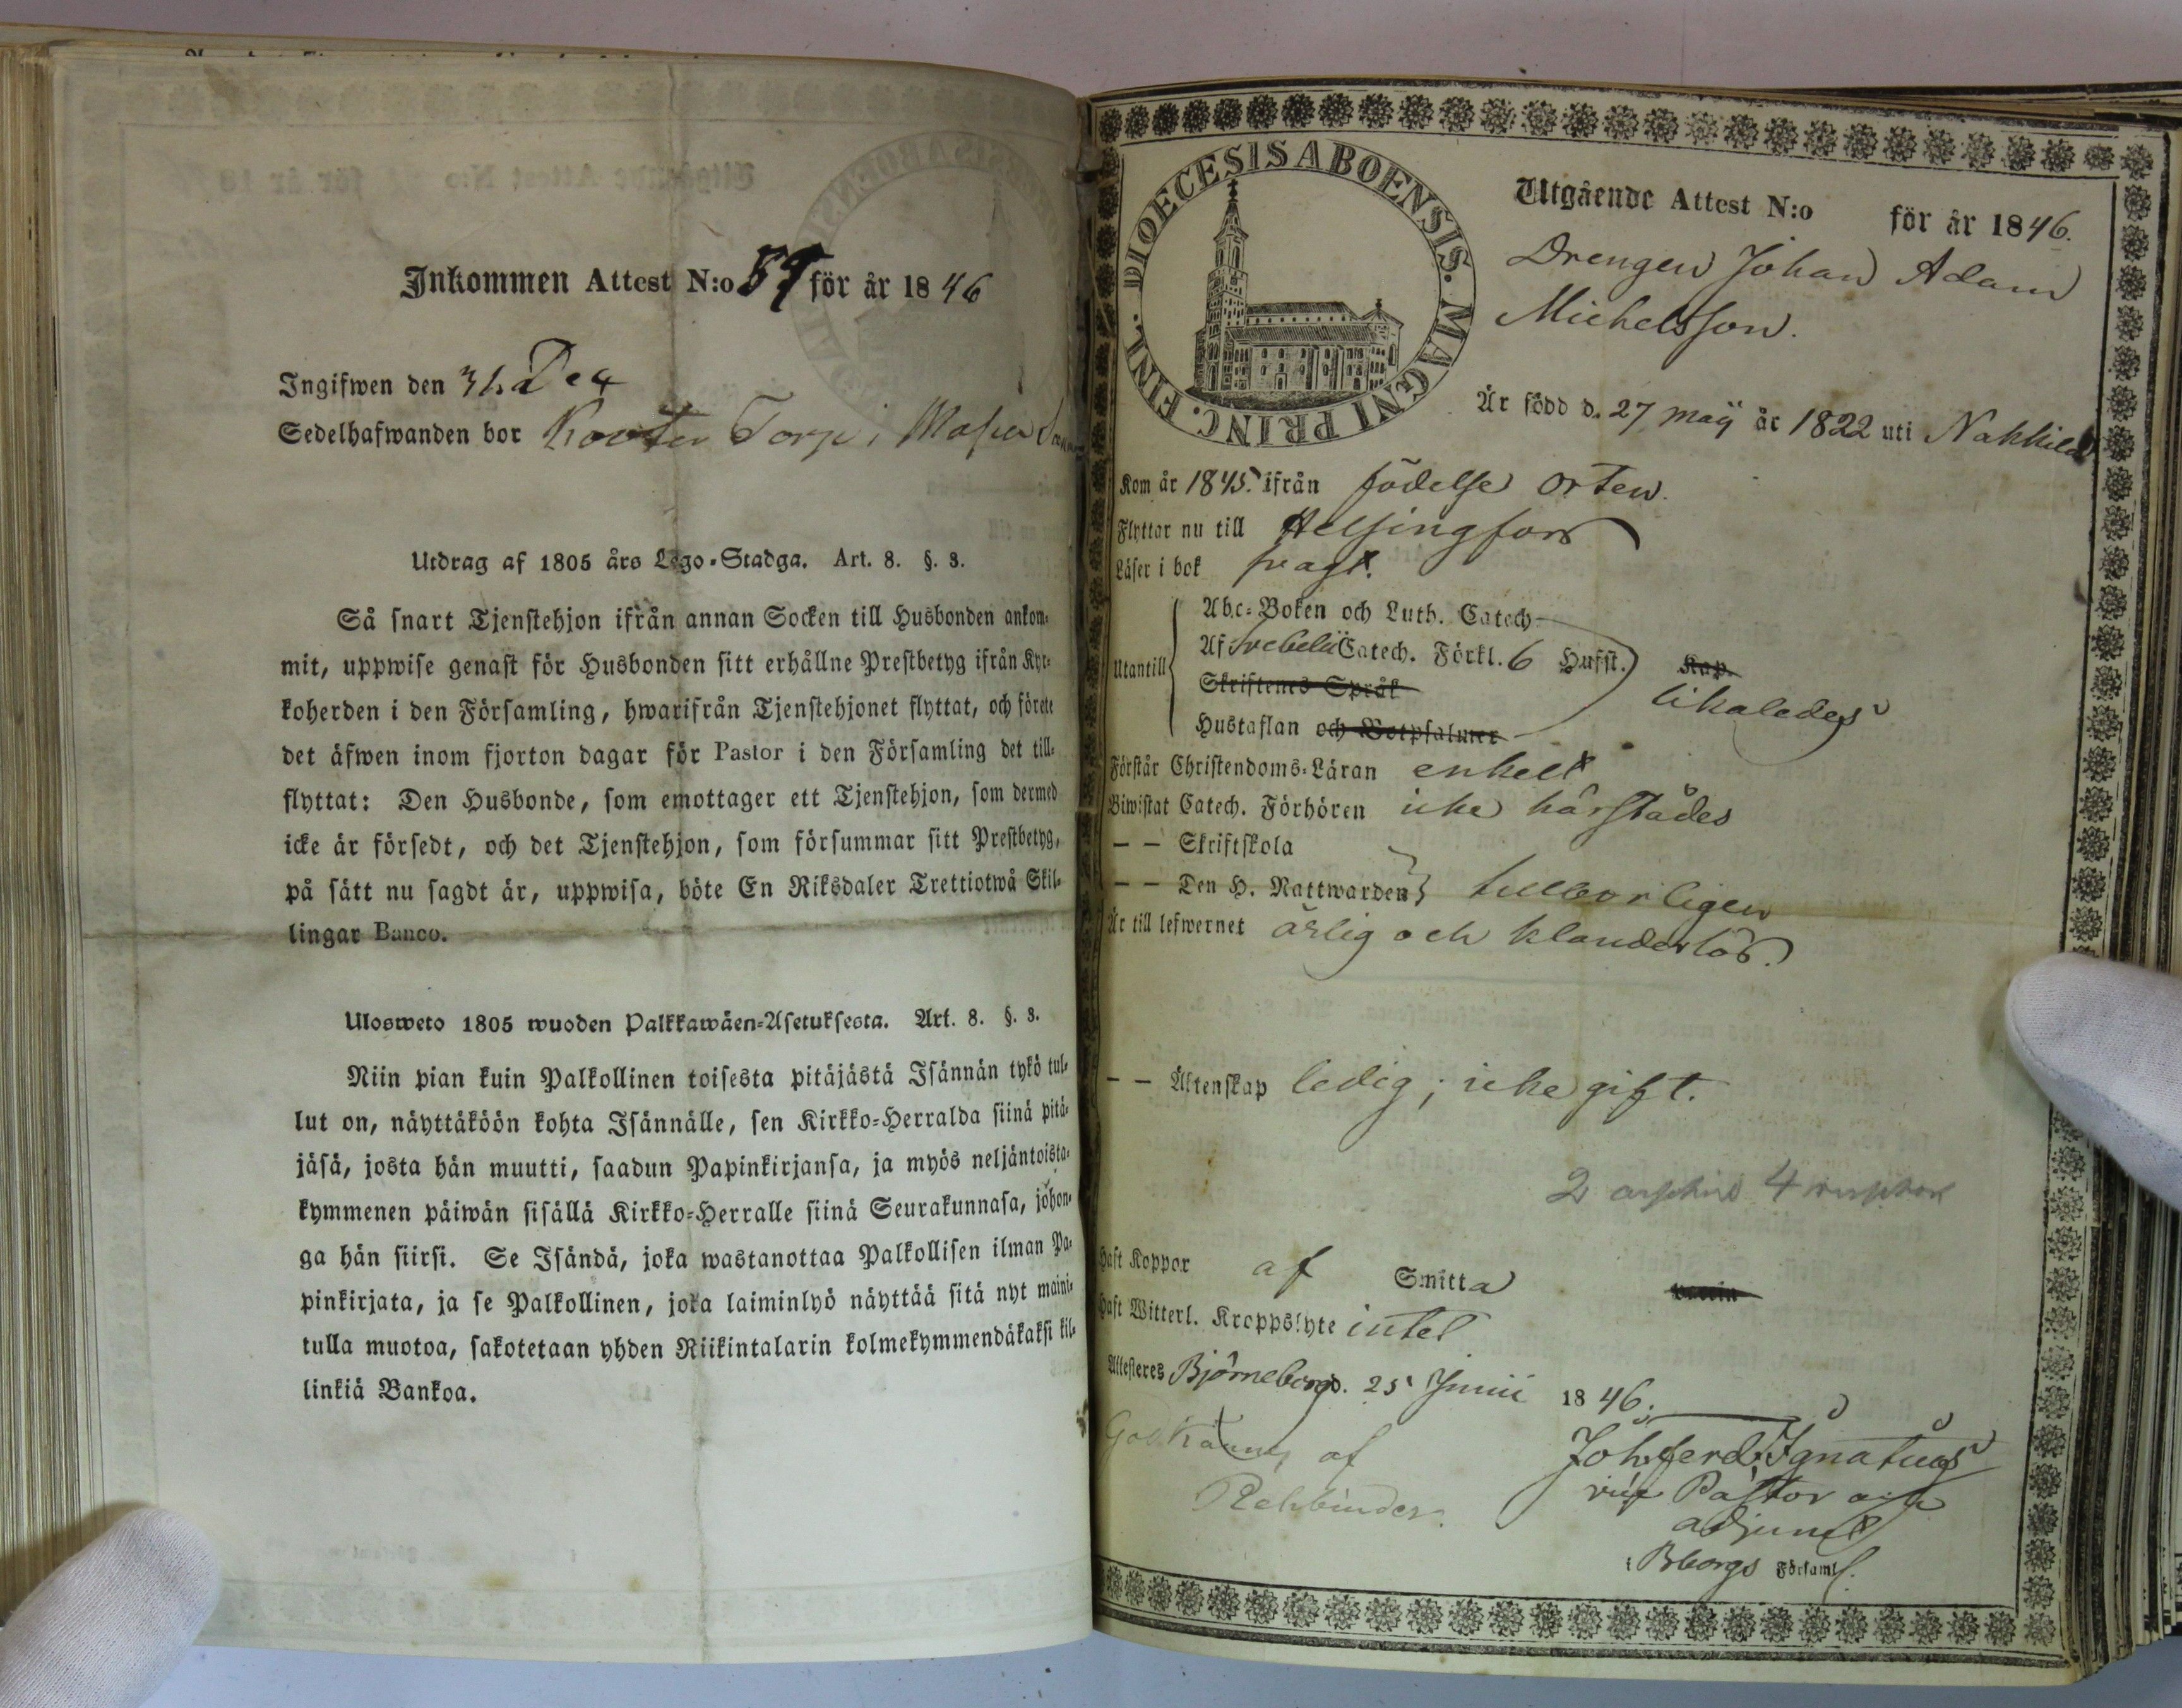 Inkommen Attest N:o 59 för år 1846
Ingifwen den 31. Dec
Sedelhafwanden bor Torp i
Utdrag af 1805 års Lego-Stadga. Art. 8. §. 3.
Så snart Tjenstehjon ifrån annan Socken till Husbonden ankom-
mit, uppwise genast för Husbonden sitt erhållne Prestbetyg ifrån Kyr-
koherden i den Församling, hwarifrån Tjenstehjonet flyttat, och förete
det äfwen inom fjorton dagar för Pastor i den Församling det till-
flyttat: Den Husbonde, som emottager ett Tjenstehjon, som dermed
icke är försedt, och det Tjenstehjon, som försummar sitt Prestbetyg,
på sätt nu sagdt är, uppwisa, böte En Riksdaler Trettiotwå Skil-
lingar Banco.
Ulosweto 1805 wuoden Palkkawäen-Asetuksesta. Art. 8. §. 3.
Niin pian kuin Palkollinen toisesta pitäjästä Isännän tykö tul-
lut on, näyttäköön kohta Isännälle, sen Kirkko-Herralda siinä pitä-
jäsä, josta hän muutti, saadun Papinkirjansa, ja myös neljäntoista-
kymmenen päiwän sisällä Kirkko-Herralle siinä Seurakunnasa, johon-
ga hän siirsi. Se Isändä, joka wastanottaa Palkollisen ilman Pa-
pinkirjata, ja se Palkollinen, joka laiminlyö näyttää sitä nyt maini-
tulla muotoa, sakotetaan yhden Riikintalarin kolmekymmendäkaksi kil-
linkiä Bankoa.
DIOECESIS ABOENSIS. MAGNI PRINC. FINL.
Utgående Attest N:o för år 1846.
Drengen Johan Adam
Michelsson.
Är född d. 27 maÿ år 1822 uti Nakkila
Kom år 1845. ifrån födelse orten.
Flyttar nu till Helsingfors
Läser i bok svagt.
Utantill
Abc-Boken och Luth. Catech
Af Svebelii Catech. Förkl. 6 Hufst. Kap.
Skriftenes Språk
likaledes
Hustaflan och Botpsalmer
Förstår Christendoms-Läran enkelt
Biwistat Catech. Förhören icke härstädes
— — Skriftskola
— — Den H. Nattwarden tillbörligen
Är till lefwernet ärlig och klanderlös.
— — Äktenskap ledig; icke gift.
Haft Koppor af Smitta vaccin
Haft Witterl. Kroppslyte intet
Attesteres Björneborg d. 25 Junii 1846.
Godkännes af
Rehbinder.
Joh. Ferd. Ignatius
vice Pastor och
adjunct
i Bborgs Församl.